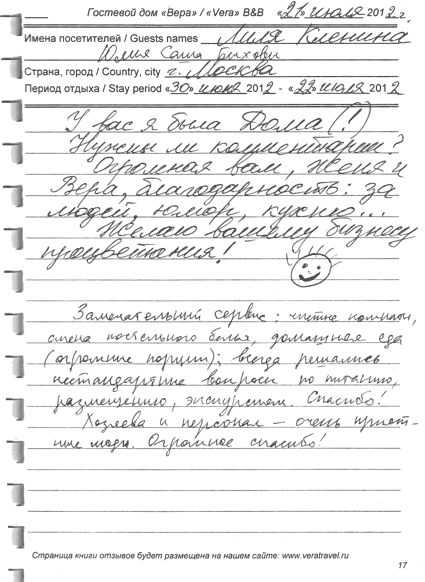 Гостевой дом «Вера» / «Vera» B&B «21» июля 2012 г.
Имена посетителей / Guests names Лиля Кленина
Юлия Саша
Страна, город / Country, city г. Москва
Период отдыха / Stay period «30» июня 2012 - «22» июля 2012
У вас я была Дома (!)
Нужны ли комментарии?
Огромная вам, Женя и
Вера, благодарность: за
людей, юмор, кухню...
Желаю вашему бизнесу
процветания!
Замечательный сервис: чистые комнаты,
смена постельного белья, домашняя еда
(огромные порции); всегда решались
нестандартные вопросы по питанию,
размещению, экскурсиям. Спасибо!
Хозяева и персонал – очень прият-
ные люди. Огромное спасибо!
Страница книги отзывов будет размещена на нашем сайте: www.veratravel.ru
17